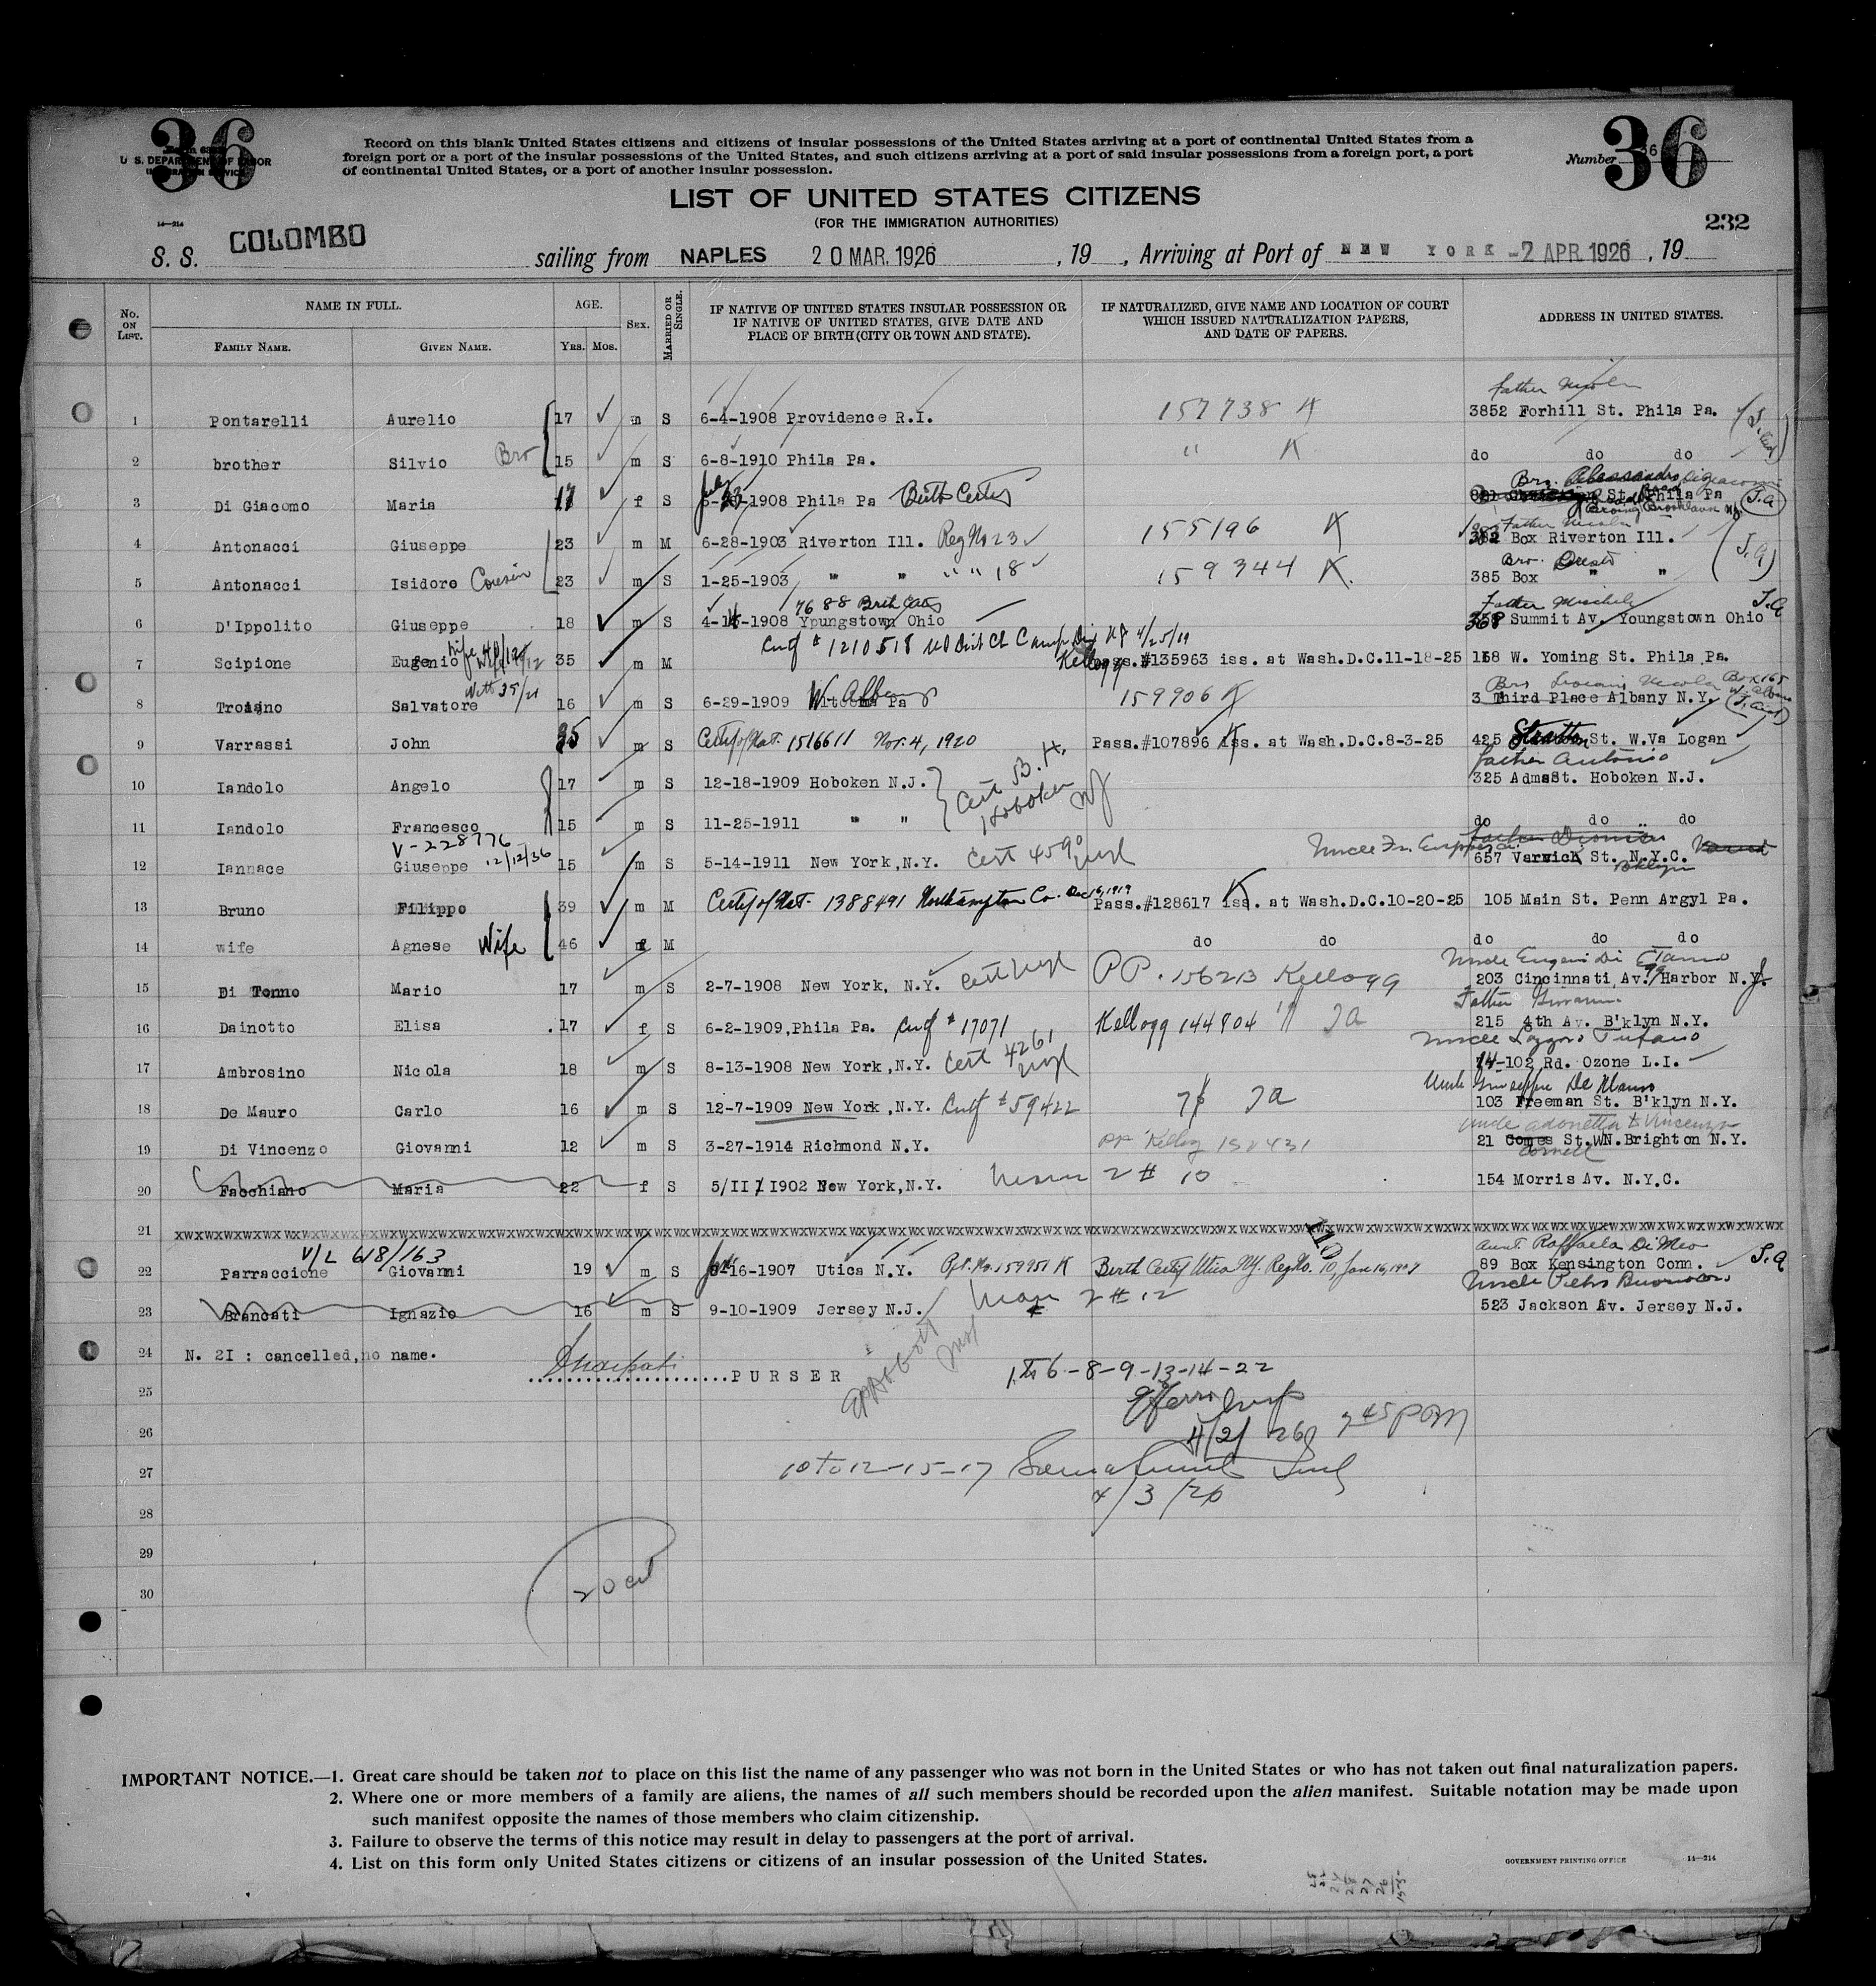 36
36
Form 630
U. S. DEPARTMENT OF LABOR
IMMIGRATION SERVICE
Record on this blank United States citizens and citizens of insular possessions of the United States arriving at a port of continental United States from a
foreign port or a port of the insular possessions of the United States, and such citizens arriving at a port of said insular possessions from a foreign port, a port
of continental United States, or a port of another insular possession.
Number 36
LIST OF UNITED STATES CITIZENS
(FOR THE IMMIGRATION AUTHORITIES)
14—214
232
S. S. COLOMBO sailing from NAPLES 20 MAR. 1926, 19 , Arriving at Port of NEW YORK -2 APR. 1926, 19
No. ON LIST. NAME IN FULL. FAMILY NAME. GIVEN NAME. AGE. YRS. MOS. SEX. MARRIED OR SINGLE. IF NATIVE OF UNITED STATES INSULAR POSSESSION OR IF NATIVE OF UNITED STATES, GIVE DATE AND PLACE OF BIRTH (CITY OR TOWN AND STATE). IF NATURALIZED, GIVE NAME AND LOCATION OF COURT WHICH ISSUED NATURALIZATION PAPERS, AND DATE OF PAPERS. ADDRESS IN UNITED STATES.
Father Nicola
1 Pontarelli Aurelio 17 m S 6-4-1908 Providence R.I. 157738 K 3852 Forhill St. Phila Pa.
2 brother Silvio Bro 15 m S 6-8-1910 Phila Pa. " K do do do
Bro. Alessandro Di Giacomo
3 Di Giacomo Maria 17 f S July 1908 Phila Pa Birth Certif St. Phila Pa (J.A)
Father Nicola
4 Antonacci Giuseppe 23 m M 6-28-1903 Riverton Ill. Reg No 23 155196 K 382 Box Riverton Ill.
Bro. Oreste
5 Antonacci Isidoro Cousin 23 m S 1-25-1903 " " " " 18 159344 K. 385 Box " " (J.A)
7688 Birth Certif Father Michele J.A
6 D'Ippolito Giuseppe 18 m S 4-14-1908 Youngstown Ohio 368 Summit Av. Youngstown Ohio
Certf # 1210518 US Dist Ct Camp Dix NJ 4/25/19
7 Scipione Eugenio 35 m M Kellogg Pass.#135963 iss. at Wash.D.C.11-18-25 168 W. Yoming St. Phila Pa.
Box 165
8 Troiano Salvatore 16 m S 6-29-1909 W. Albany Pa 159906 K 3 Third Place Albany N.Y.
9 Varrassi John 35 m S Certif of Nat. 1516611 Nov. 4, 1920 Pass.#107896 iss. at Wash.D.C.8-3-25 425 Stratton St. W.Va Logan
Father Antonio
10 Iandolo Angelo 17 m S 12-18-1909 Hoboken N.J. Cert B. H. Hoboken NJ 325 Adms St. Hoboken N.J.
11 Iandolo Francesco 15 m S 11-25-1911 " " do do do
V-228776 12/12/36
12 Iannace Giuseppe 15 m S 5-14-1911 New York,N.Y. Cert 4590 657 Varvick St. N.Y.C.
Bklyn
13 Bruno Filippo 39 m M Certif of Nat. 1388491 Northampton Co. Dec 16, 1919 Pass.#128617 iss. at Wash.D.C.10-20-25 105 Main St. Penn Argyl Pa.
14 wife Agnese Wife 46 f M do do do do do
Uncle Eugenio Di Tanno
15 Di Tonno Mario 17 m S 2-7-1908 New York, N.Y. PP. 156213 Kellogg 203 Cincinnati Av. Harbor N.J.
Father Giovanni
16 Dainotto Elisa 17 f S 6-2-1909,Phila Pa. Certf # 17071 Kellogg 144904 JA 215 4th Av. B'klyn N.Y.
17 Ambrosino Nicola 18 m S 8-13-1908 New York,N.Y. Cert 4261 74-102 Rd. Ozone L.I.
Uncle Giuseppe De Mauro
18 De Mauro Carlo 16 m S 12-7-1909 New York,N.Y. Certf # 59422 JA 103 Freeman St. B'klyn N.Y.
19 Di Vincenzo Giovanni 12 m S 3-27-1914 Richmond N.Y. PP Kellog 150431 21 Comes St.WN.Brighton N.Y.
Cornell
20 Facchiano Maria 22 f S 5/II/I902 New York,N.Y. 2 # 10 154 Morris Av. N.Y.C.
21 xwxwxwxwxwxwxwxwxwxwxwxwxwxwxwxwxwxwxwxwxwxwxwxwxwxwxwxwxwxwxwxwxwxwxwxwxwxwxwxwxwxwxwxwxwxwxwxwxwx
V/L 618/163 Aunt. Raffaela Di Meo
22 Parraccione Giovanni 19 m S Jan-16-1907 Utica N.Y. Ppt. No. 159951 K Birth Certif Utica NY. Reg No. 10, Jan 16, 1907 89 Box Kensington Conn. J.A
23 Brancati Ignazio 16 m S 9-10-1909 Jersey N.J. 2 # 12 523 Jackson Av. Jersey N.J.
24 N. 2I : cancelled,no name.
....................PURSER
1 to 6-8-9-13-14-22
25
4/2/26 7 45 PM
26
10 to 12-15-17
27
4/3/26
28
29
20
30
IMPORTANT NOTICE.—1. Great care should be taken not to place on this list the name of any passenger who was not born in the United States or who has not taken out final naturalization papers.
2. Where one or more members of a family are aliens, the names of all such members should be recorded upon the alien manifest. Suitable notation may be made upon
such manifest opposite the names of those members who claim citizenship.
3. Failure to observe the terms of this notice may result in delay to passengers at the port of arrival.
4. List on this form only United States citizens or citizens of an insular possession of the United States.
GOVERNMENT PRINTING OFFICE 14—214